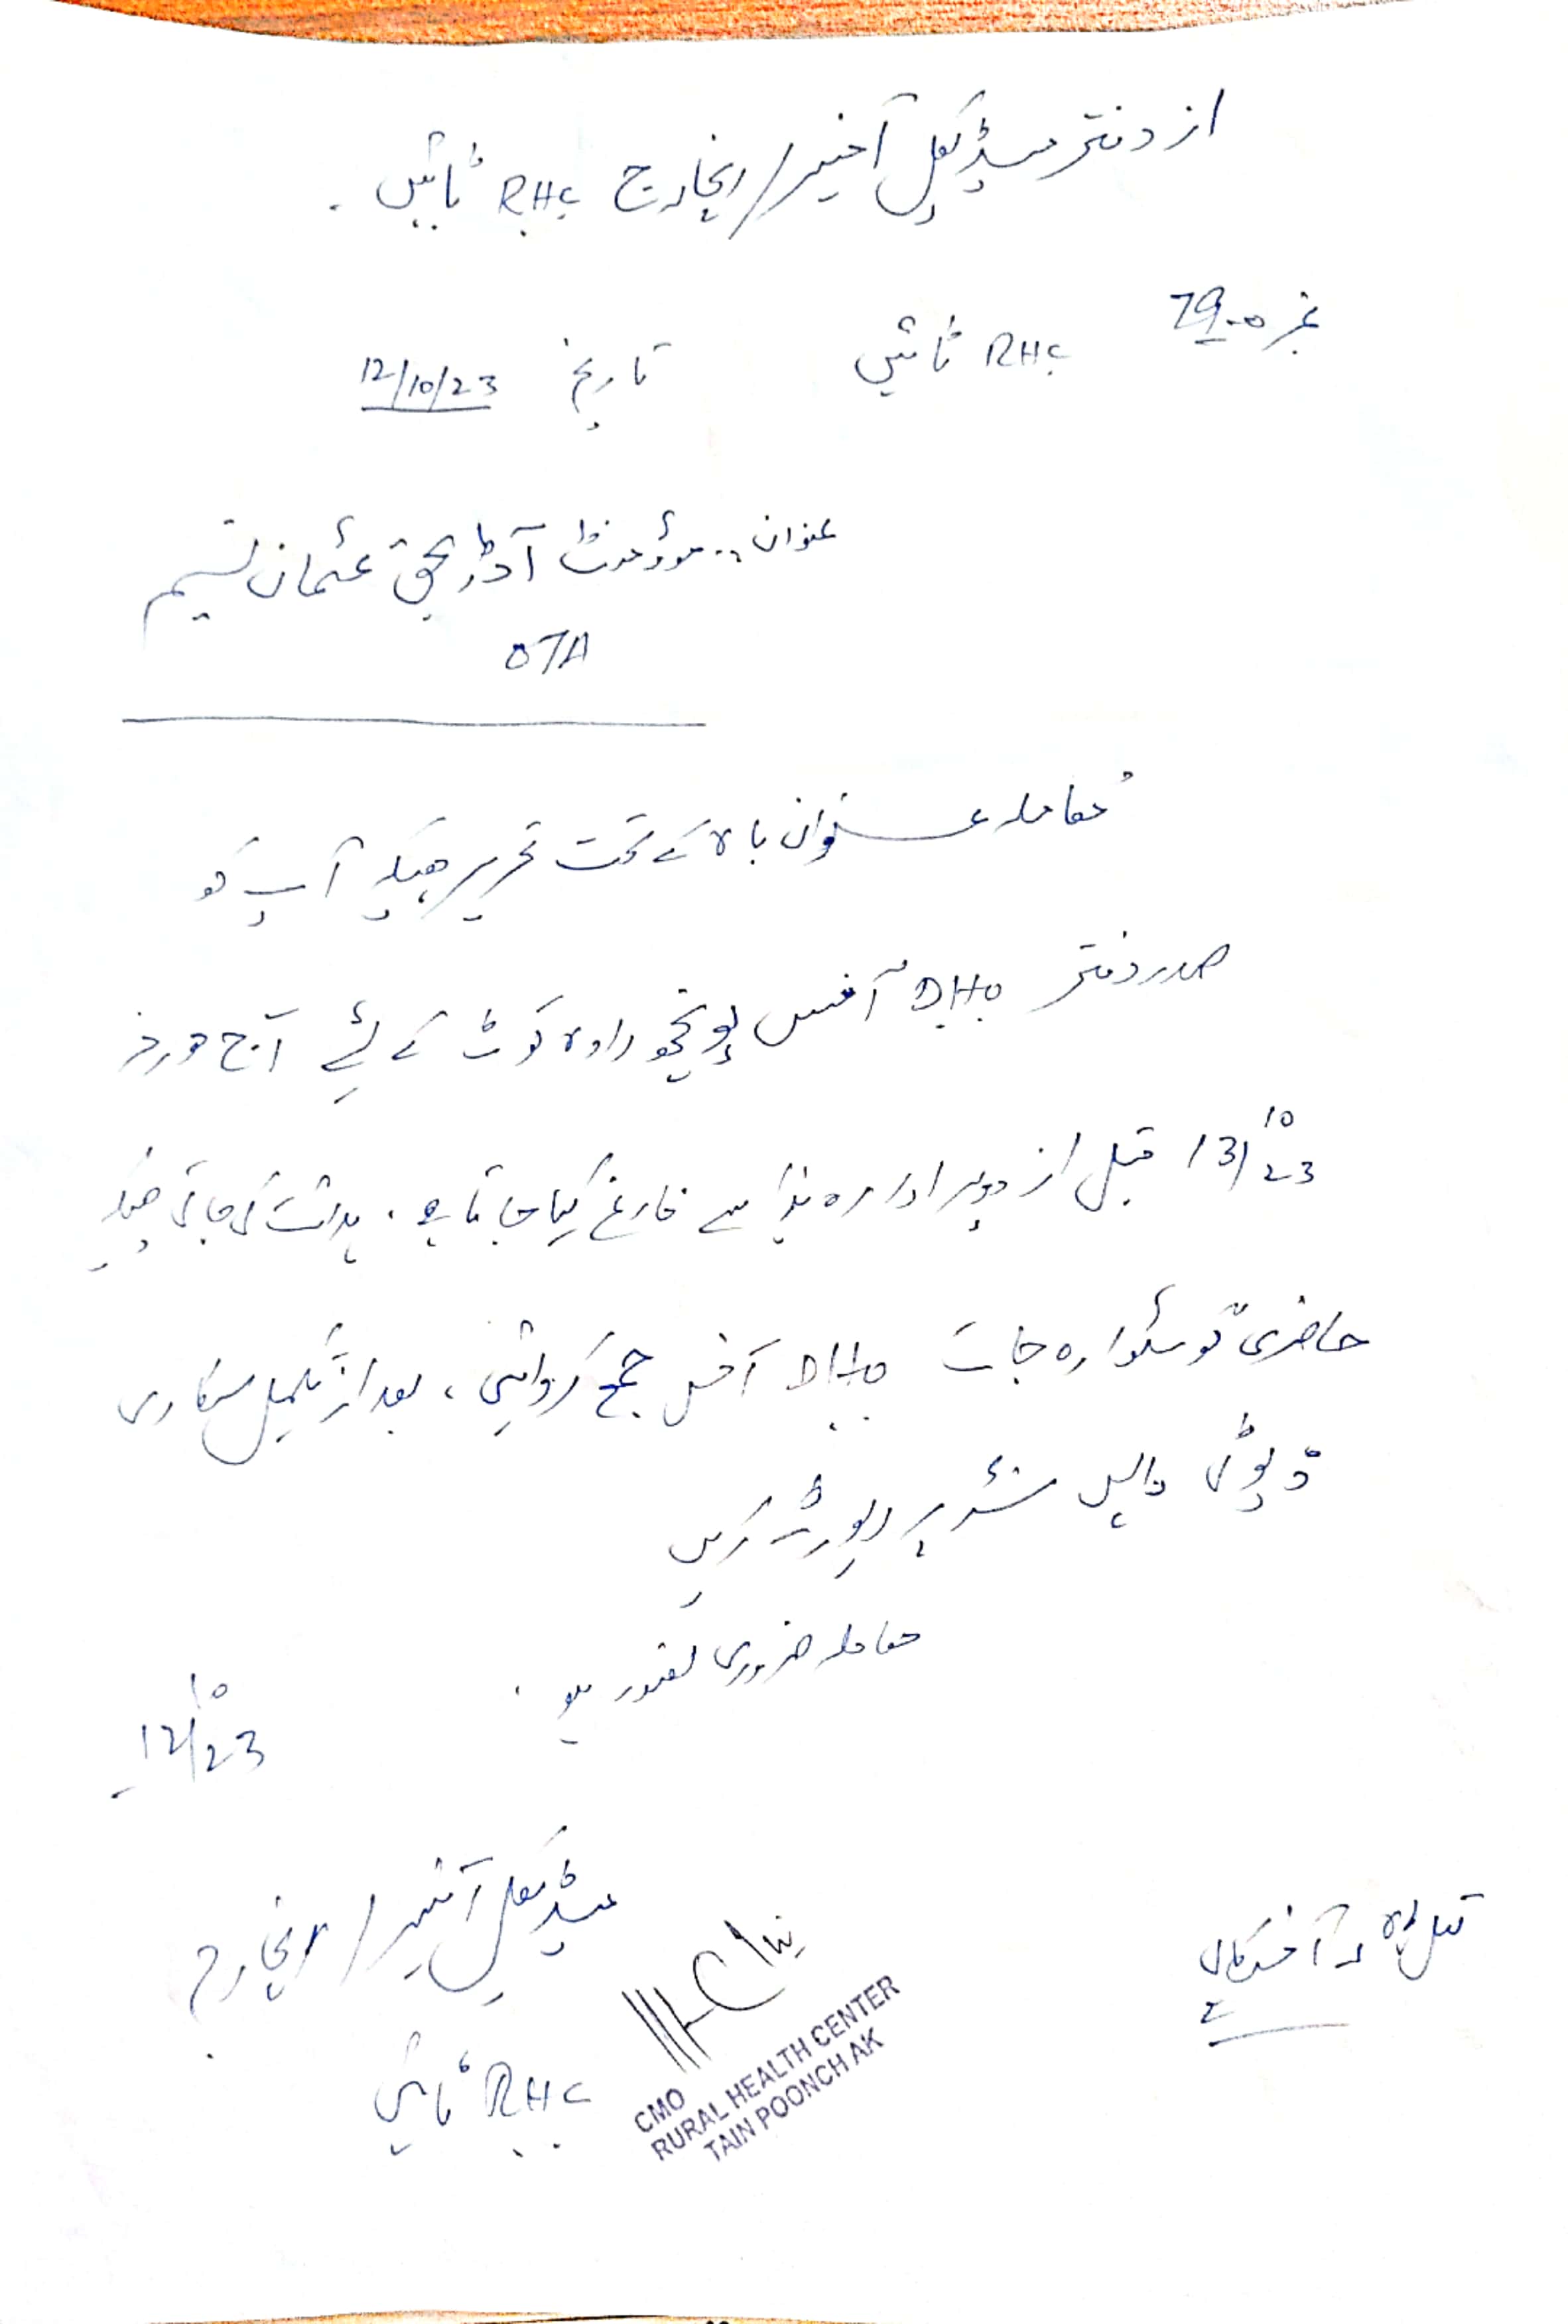 از دفتر میڈیکل آفیسر / انچارج RHC ٹائیں ۔
نمبر 79 RHC ٹائیں تاریخ 12/10/23
عنوان :۔ موؤمنٹ آڈر بحق عثمان نسیم
OTA
معاملہ عنوان بالا کے تحت تحریر ھیکہ آپ کو
صدر دفتر DHO آفس پونچھ راولاکوٹ کے لئے آج مورخہ
13/10/23 قبل از دوپہر ادارہ ہذا سے فارغ کیا جاتا ہے ۔ ہدائت کی جاتی ھیکہ
حاضری گوشوارہ جات DHO آفس جمع کروائیں ، بعد از تکمیل سرکاری
ڈیوٹی واپس سنٹر پر رپورٹ کریں
معاملہ ضروری تصور ہو ۔
12/10/23
میڈیکل آفیسر / انچارج
RHC ٹائیں
آفس کاپی
CMO
RURAL HEALTH CENTER
TAIN POONCH AK